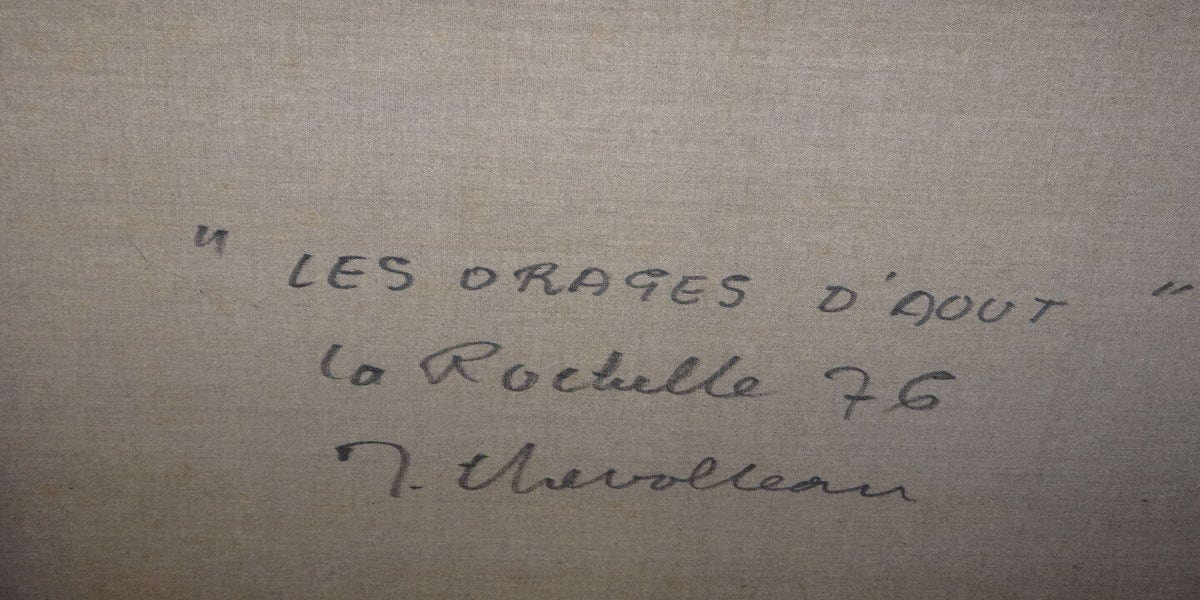 " LES ORAGES D'AOUT "
La Rochelle 76
J. Chevolleau